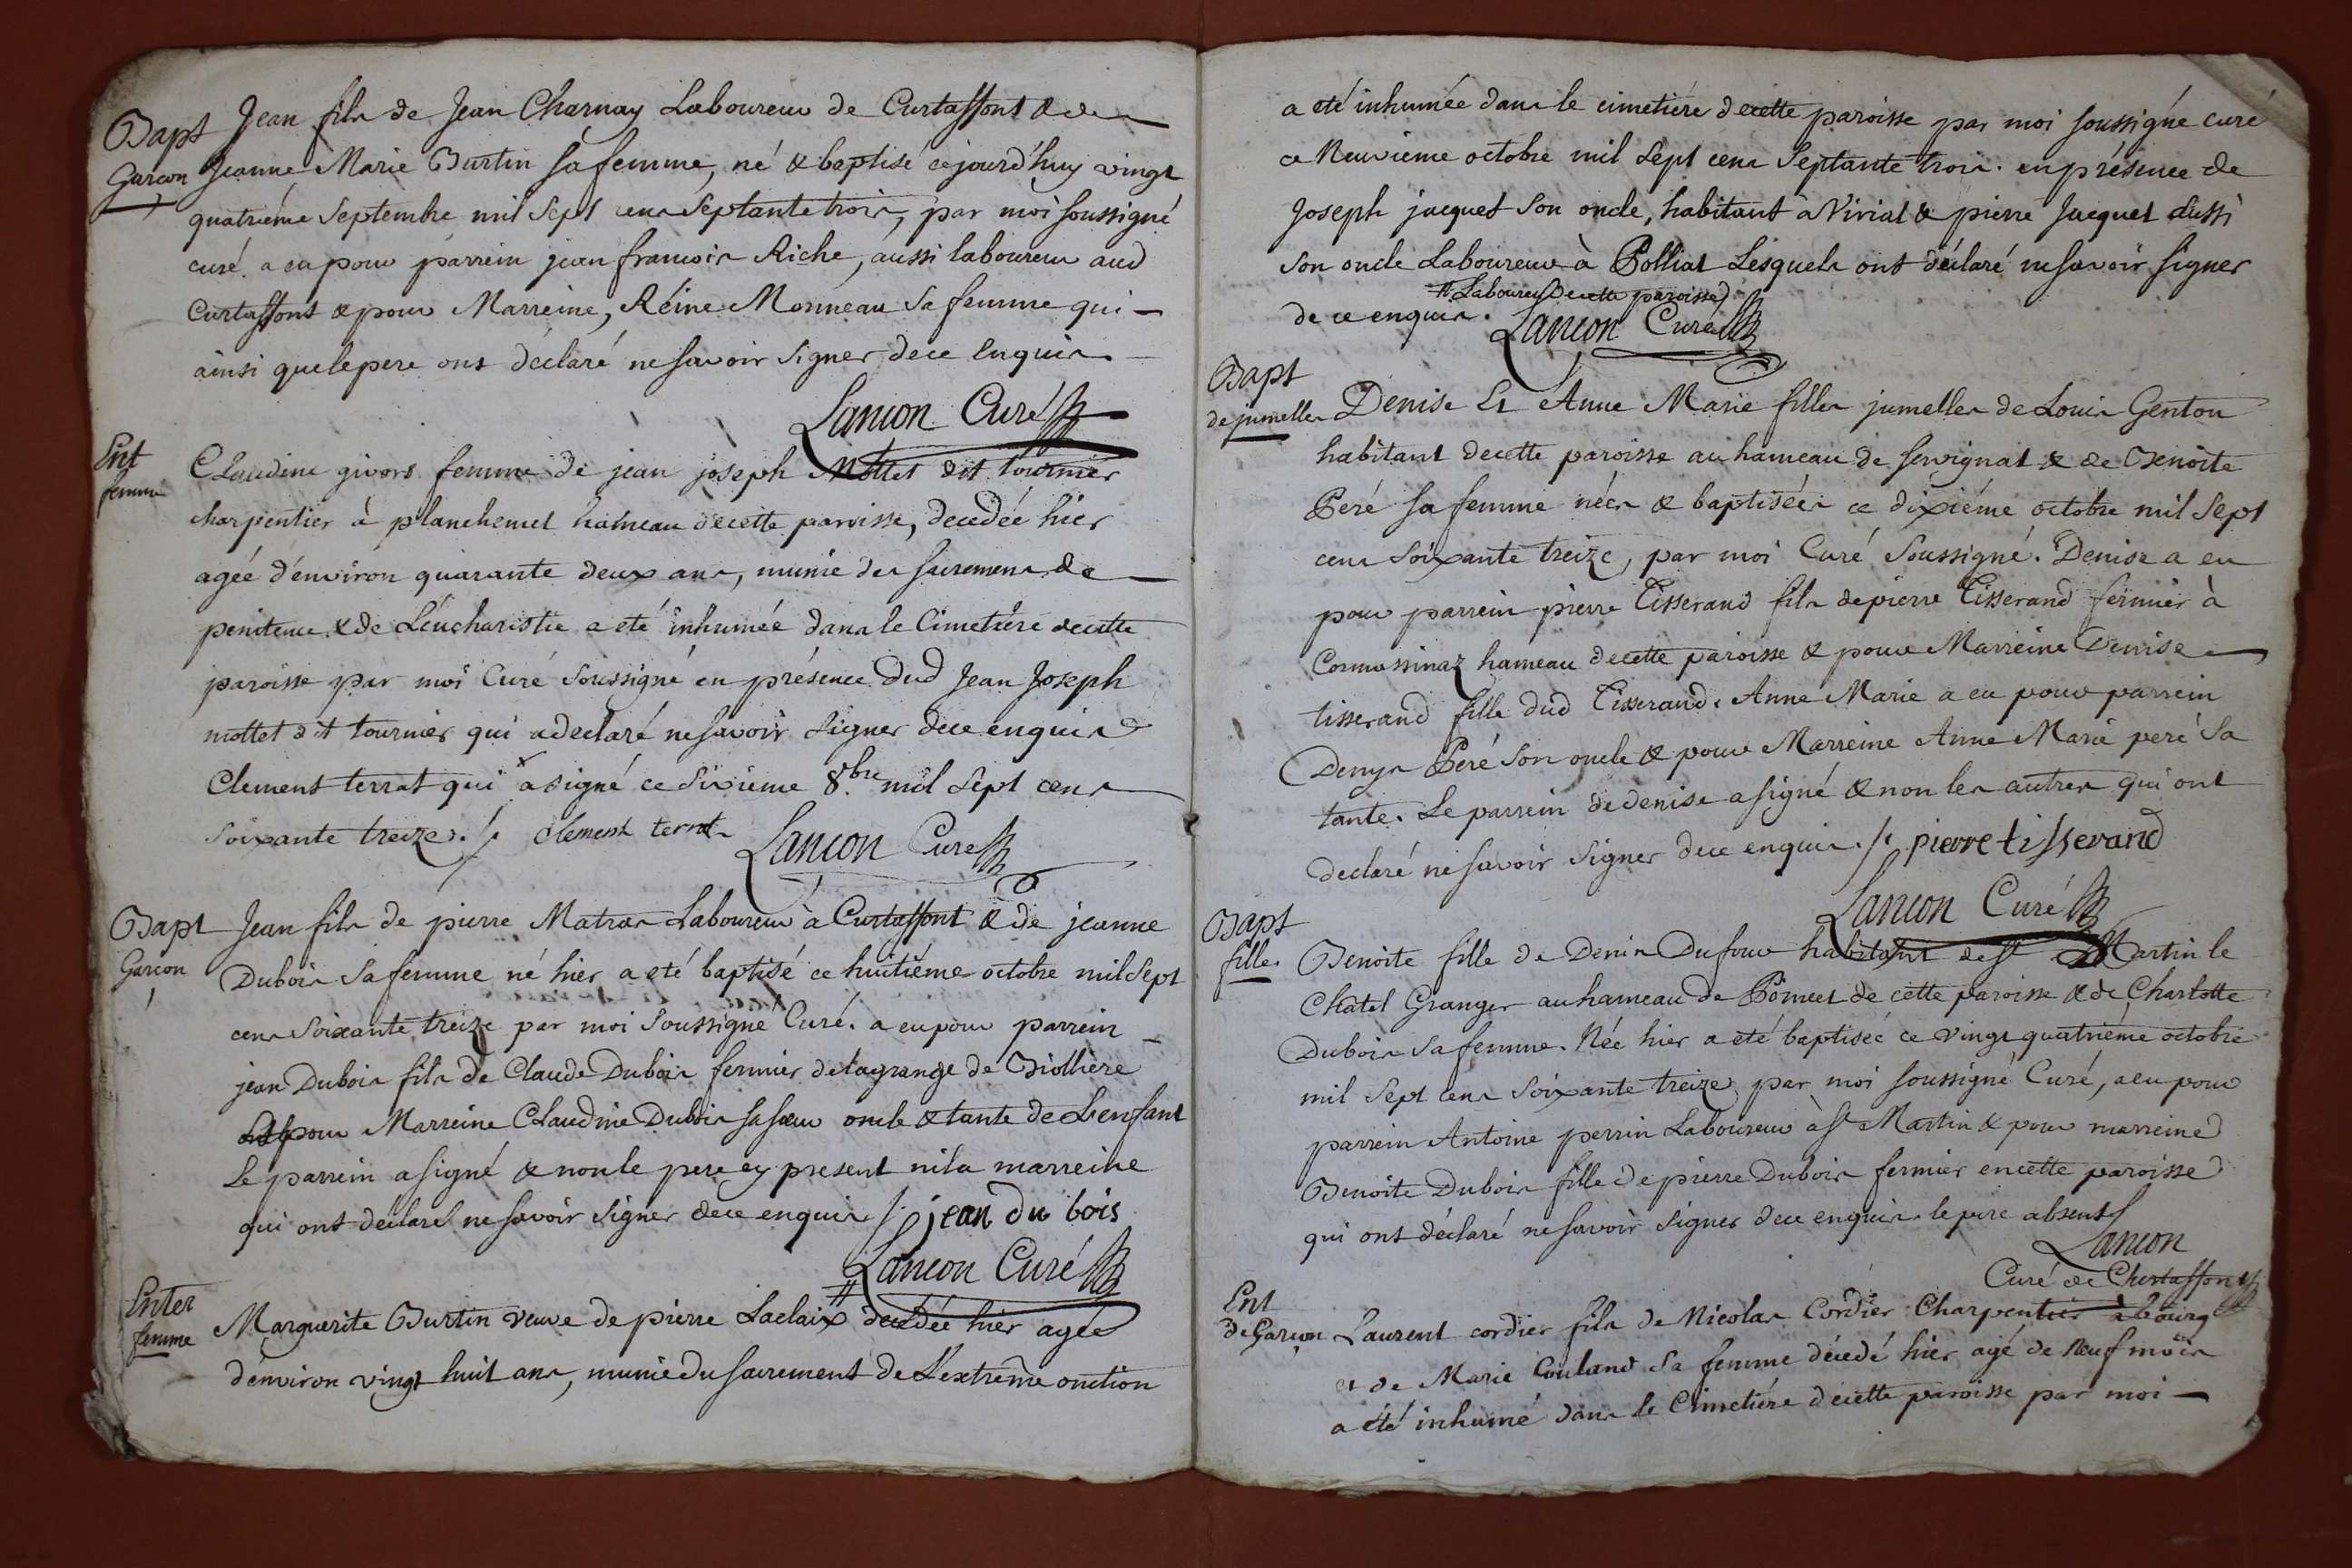 Bapt
Garcon
Jean fils de Jean Charnay Laboureur de Curtaffont & de
Jeanne Marie Burtin sa femme, né & baptisé cejourd'huy vingt
quatriéme Septembre mil Sept cens Septante trois, par moi soussigné
curé. a eu pour parrein jean francois Riche, aussi laboureur aud
Curtaffont & pour Marreine, Réine Monneau Sa femme qui
ainsi que le pere ont déclaré ne savoir signer de ce enquis.
Lancon Curé
Ent
femme
Claudine givors femme de jean joseph Mottet dit tournier
charpentier à planchemel hameau de cette paroisse, decedée hier
agée d'environ quarante deux ans, munie des sacremens de
penitence & de Léucharistie a eté inhumée dans le Cimetiere de cette
paroisse par moi Curé Soussigné en présence dud Jean Joseph
mottet dit tournier qui a declaré ne savoir Signer de ce enquis &
Clement terrat qui a signé ce sixieme 8.bre mil Sept cens
soixante treize ./. clement terrat
Lancon Curé
Bapt
Garcon
Jean fils de pierre Matras Laboureur à Curtaffont & de jeanne
Dubois Sa femme né hier a eté baptisé ce huitiéme octobre mil Sept
cens Soixante treize par moi Soussigné Curé. a eu pour parrein
jean Dubois fils de Claude Dubois fermier de la grange de Biolliere
pour Marreine Claudine Dubois sa sœur oncle & tante de L'enfant
Le parrein a signé & non le pere cy present ni la marreine
qui ont déclaré ne savoir signer de ce enquis ./. jean du bois
Lancon Curé
Enter
femme
Marguerite Burtin veuve de pierre Laclaix # decedée hier agée
d'environ vingt huit ans, munie du sacrement de L'extrême onction
a eté inhumée dans le cimetiére de cette paroisse par moi soussigné curé
ce Neuvieme octobre mil Sept cens Septante trois. en présence de
Joseph jacquet son oncle, habitant à Viriat & pierre Jacquet aussi
son oncle Laboureur à Polliat Lesquels ont déclaré ne savoir signer
# Laboureur de cette paroisse
de ce enquis.
Lancon Curé
Bapt
de jumelles
Denise Et Anne Marie filles jumelles de Louis Genton
habitant de cette paroisse au hameau de servignat & de Benoite
Peré sa femme nées & baptisées ce dixiéme octobre mil Sept
cens Soixante treize, par moi Curé Soussigné. Denise a eu
pour parrein pierre Tisserand fils de pierre Tisserand fermier à
Cormassinaz hameau de cette paroisse & pour Marreine Denise
tisserand fille dud Tisserand. Anne Marie a eu pour parrein
Denys Peré Son oncle & pour Marreine Anne Marie peré Sa
tante. Le parrein de denise a signé & non les autres qui ont
declaré ne savoir Signer de ce enquis ./. pierre tisserand
Lancon Curé
Bapt
fille
Benoite fille de Denis Dufour habitant de St Martin le
Chatel Granger au hameau de Pomeet de cette paroisse & de Charlotte
Dubois Sa femme. Née hier a eté baptisée ce vingt quatriéme octobre
mil Sept cens Soixante treize par moi soussigné Curé, a eu pour
parrein Antoine perrin Laboureur à St Martin & pour marreine
Benoite Dubois fille de pierre Dubois fermier en cette paroisse
qui ont déclaré ne savoir signer de ce enquis. le pere absent
Lancon
Curé de Curtaffont
Ent
de Garcon
Laurent cordier fils de Nicolas Cordier Charpentier à bourg
et de Marie Couland Sa femme décedé hier agé de neuf mois
a été inhumé dans le Cimetiére de cette paroisse par moi